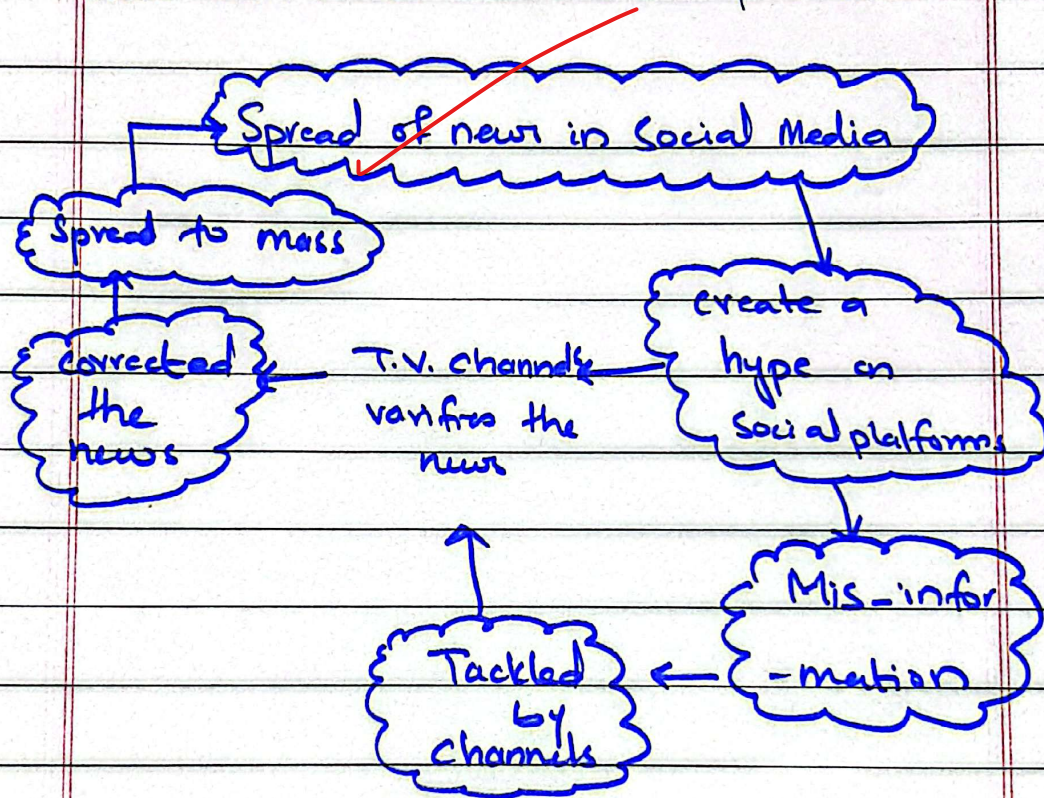 Spread of news in Social Media
Spread to mass
create a
hype on
social platforms
corrected
the
news
T.V. channels
varifies the
news
Mis-infor
-mation
Tackled
by
channels